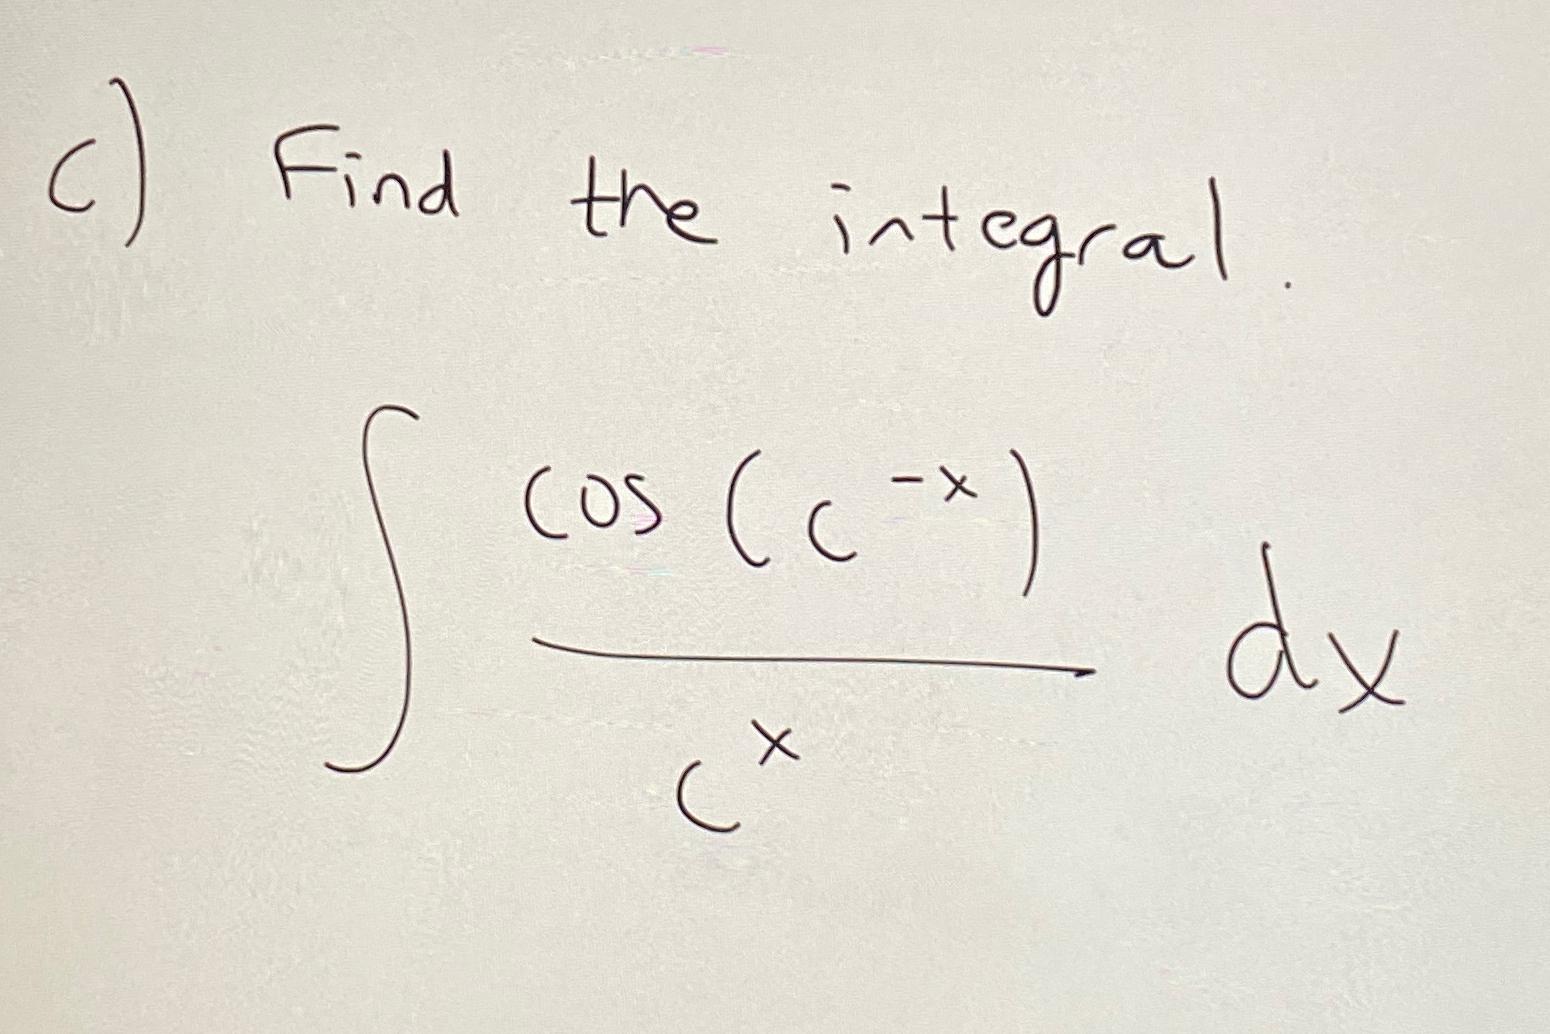 c) Find the integral.
∫ cos (c^-x) / c^x dx